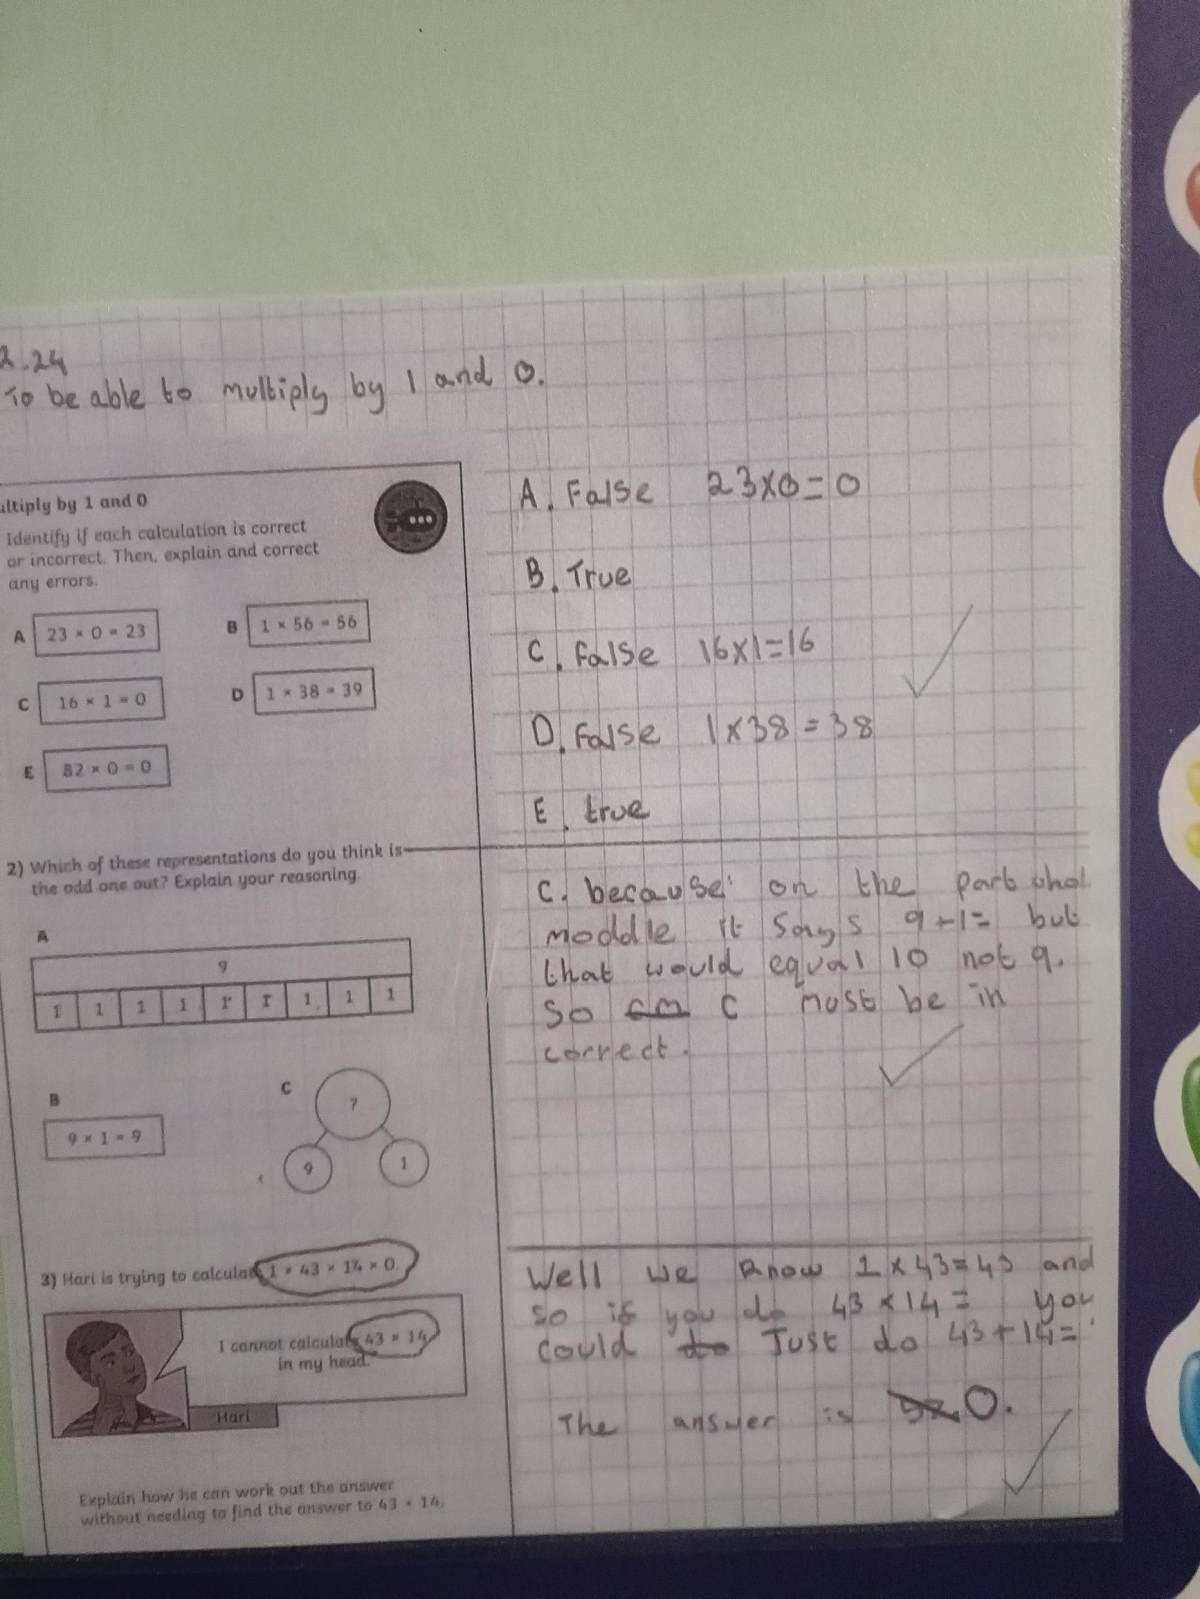 2.24
To be able to multiply by 1 and 0.
ultiply by 1 and 0
Identify if each calculation is correct
or incorrect. Then, explain and correct
any errors.
A 23 × 0 = 23 B 1 × 56 = 56
C 16 × 1 = 0 D 1 × 38 = 39
E 82 × 0 = 0
A. False 23×0=0
B. True
C. False 16×1=16
D. False 1×38=38
E. true
2) Which of these representations do you think is
the odd one out? Explain your reasoning.
A
9
1 1 1 1 1 1 1 1 1
B
9 × 1 = 9
C
?
9 1
C. because on the part whol
moddle it says 9+1= but
that would equal 10 not 9.
So C must be in
correct.
3) Hari is trying to calculate 1 × 43 × 14 × 0.
I cannot calculate 43 × 14
in my head.
Hari
Explain how he can work out the answer
without needing to find the answer to 43 × 14.
Well we know 1×43=43 and
so if you do 43×14= you
could do Just do 43+14=
The answer is 0.